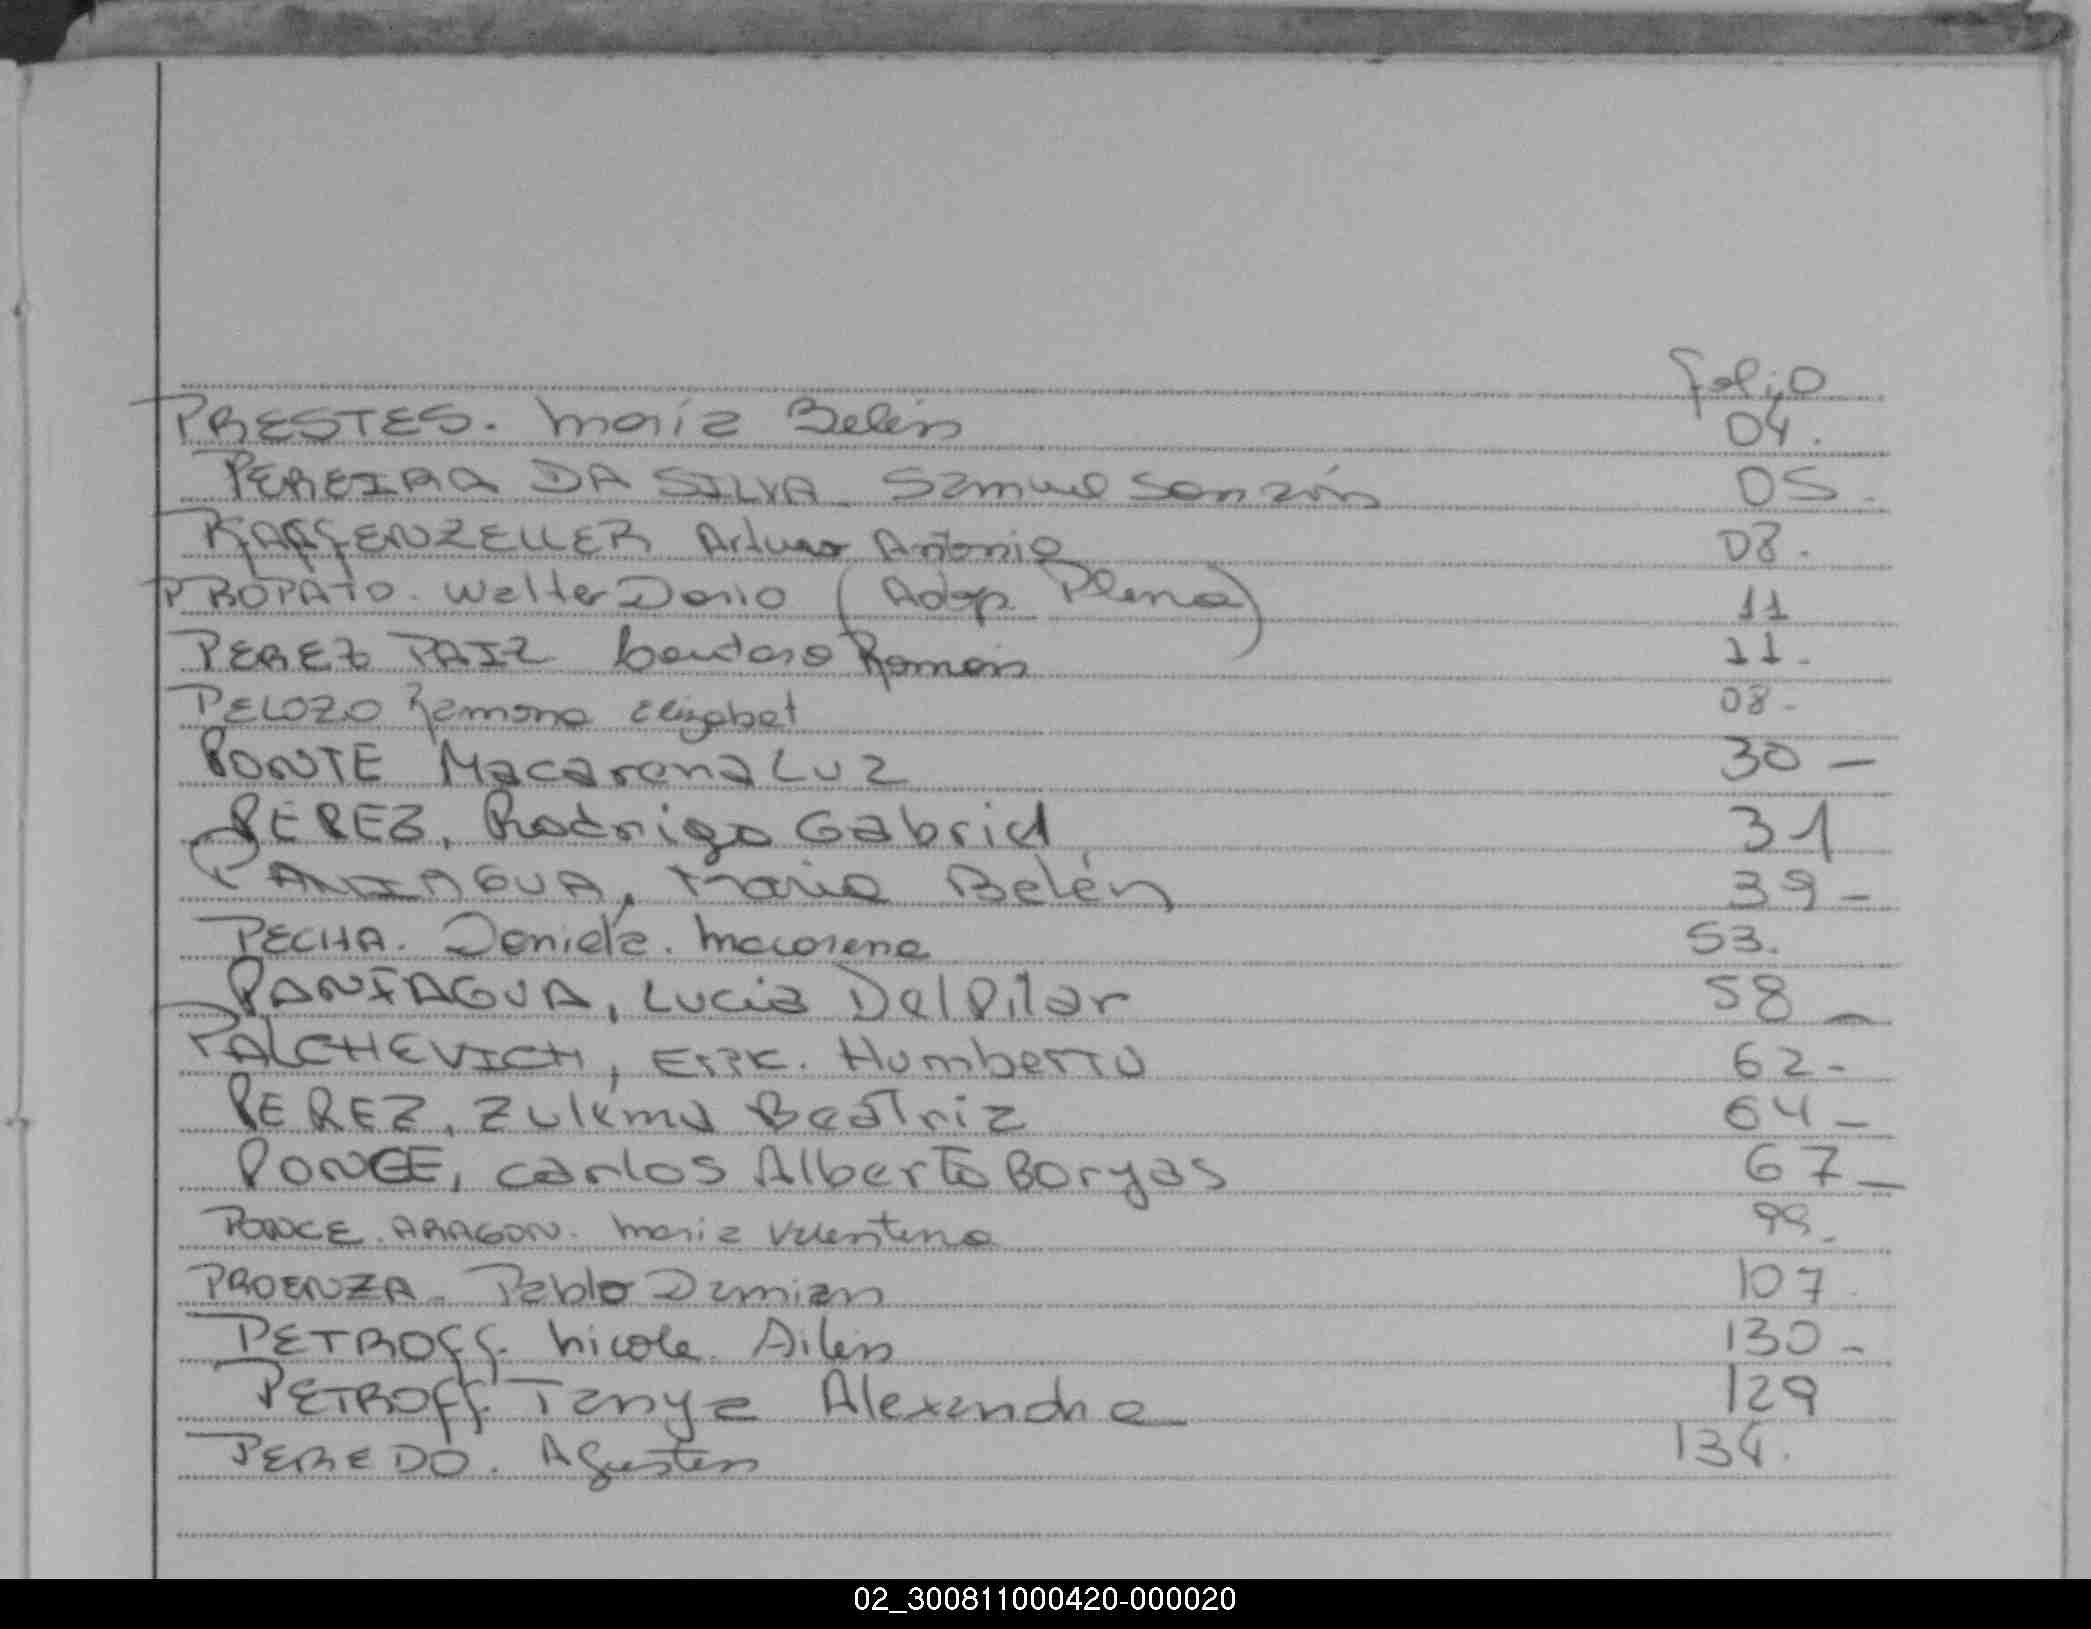 Folio
PRESTES. María Belén 04.
PEREIRA DA SILVA Samuel Sanzón 05.
PFAFFENZELLER Arturo Antonio 08.
PROPATO. Walter Dario (Adop. Plena) 11
PEREZ PAIZ Lautaro Roman 11.
PELOZO Ramona Elizabet 08-
PONTE Macarena Luz 30 —
PEREZ, Rodrigo Gabriel 31
PANIAGUA, Maria Belén 39 -
PECHA. Daniela. Macarena 53.
PANIAGUA, Lucia Del Pilar 58 _
PALCHEVICH, Erik. Humberto 62-
PEREZ, Zulema Beatriz 64 -
PONCE, Carlos Alberto Boryas 67 _
PONCE. ARAGON. Maria Valentina
PROENZA. Pablo Damian 107
PETROFF. Nicole. Ailen 130 -
PETROFF. Tanya Alexandra 129
PEREDO. Agusten 134.
02_300811000420-000020